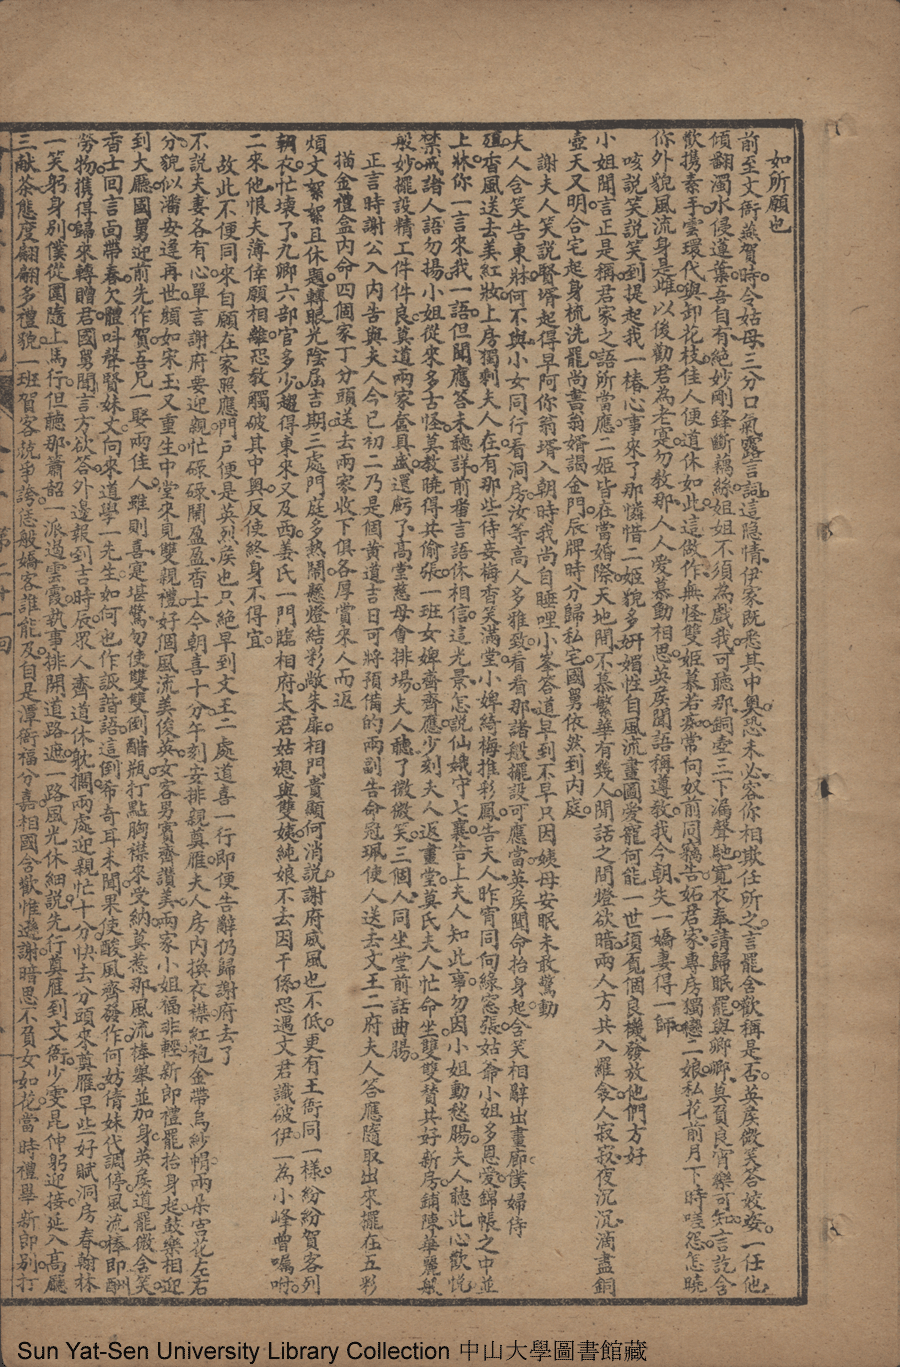 如所願也
前至文衙蒸賀時令姑母三分口氣露言詞這隐情伊家既悉其中奧恐未必容你相欺任所之言罷含歡稱是否英矦微笑答姣姿一任他
傾翻濁水侵蓮葉吾自有絕妙剛鋒斷藕絲姐姐不須為戲我可聽那銅壺三下漏聲馳寬衣奉請歸眠罷與卿卿莫負良宵樂可知言訖含
歡携素手雲環代與卸花枝佳人便道休如此這做作無怪雙姬慕若痴常向奴前同竊告妬君家專房獨戀二娘私花前月下時嗟怨怎曉
你外貌風流身是雌以後勸君為老寔勿教那人人愛慕動相思英矦聞語稱遵教我今朝失一嬌妻得一師
咳說笑說笑到提起我一樁心事來了那憐惜二姬貌多姸媚性自風流畫圖愛寵何能一世須覔個良機發放他們方好
小姐聞言正是稱君家之語所當應二姬皆在當婚際天地閒不慕繁華有幾人閒話之間燈欲暗兩人方共入羅衾人寂寂夜沉沉滴盡銅
壺天又明合宅起身梳洗罷尚書翁婿謁金門辰牌時分歸私宅國舅依然到內庭
謝夫人笑說賢壻起得早阿你翁壻入朝時我尚自睡哩小峯答道早到不早只因姨母安眠未敢驚動
夫人含笑告東牀何不與小女同行看洞房汝等高人多雅致看看那諸般擺設可應當英矦聞命抬身起含笑相辭出畫廊僕婦侍
隨香風送去美紅妝上房獨剩夫人在有那些侍妾梅香笑滿堂小婢綺梅推彩鳳告夫人昨宵同向綠窓張姑爺小姐多恩愛錦帳之中並
上牀你一言來我一語但聞應答未聽詳前番言語休相信這光景怎說仙娥守七襄告上夫人知此事勿因小姐動愁腸夫人聽此心歡悅
禁戒諸人語勿揚小姐從來多古怪莫教曉得共偷張一班女婢齊齊應少刻夫人返畫堂莫氏夫人忙命坐雙雙賛共好新房鋪陳華麗般
般妙擺設精工件件良莫道兩家奩具盛還虧了高堂慈母會排場夫人聽了微微笑三個人同坐堂前話曲腸
正言時謝公入內告與夫人今已初二乃是個黄道吉日可將預備的兩副告命冠珮使人送去文王二府夫人答應隨取出來擺在五彩
描金禮盒內命四個家丁分頭送去兩家收下俱各厚賞來人而返
煩文絮絮且休題轉眼光陰屆吉期三處門庭多熱鬧懸燈結彩敞朱扉相門貴顯何消說謝府威風也不低更有王衙同一樣紛紛賀客列
朝衣忙壞了九卿六部官多少趨得東來又及西姜氏一門臨相府太君姑媳與雙姨純娘不去因干係恐遇文君識破伊一為小峰曾囑咐
二來他恨夫薄倖願相離恐教觸破其中奧反使終身不得宜
故此不便同來自願在家照應門戶便是英烈矦也只絕早到文王二處道喜一行即便告辭仍歸謝府去了
不說夫妻各有心單言謝府要迎親忙碌碌鬧盈盈香士今朝喜十分午刻安排親奠雁夫人房內換衣襟紅袍金帶烏紗帽兩朵宫花左右
分貌似潘安逢再世顏如宋玉又重生中堂來見雙親禮好個風流美俊英女客男賓齊讃美兩家小姐福非輕新郎禮罷抬身起鼓樂相迎
到大廳國舅迎前先作賀吾兄一娶兩佳人雖則喜寔堪驚勿使雙雙倒醋瓶打點胸襟來受納莫惹那風流棒舉並加身英矦道罷微含笑
香士回言面帶春欠體呌聲賢妹丈向來道學一先生如何也作詼諧語這倒希奇耳未聞果使酸風齊發作何妨倩妹代調停風流棒即酬
勞物攜得歸來轉贈君國舅聞言方欲答外邊報到吉時辰眾人齊道休躭擱兩處迎親忙十分快去分頭來奠雁早些好賦洞房春翰林
一笑躬身別僕從圍隨上馬行但聽那蕭韶一派過雲霞執事排開道路遮一路風光休細說先行奠雁到文衙少雯昆仲躬迎接延入高廳
三献茶態度翩翩多禮貌一班賀客統爭誇恁般嬌客誰能及自是潭衙福分嘉相國含歡惟遜謝暗思不負女如花當時禮畢新郎別打
第二十一回
Sun Yat-Sen University Library Collection 中山大學圖書館藏